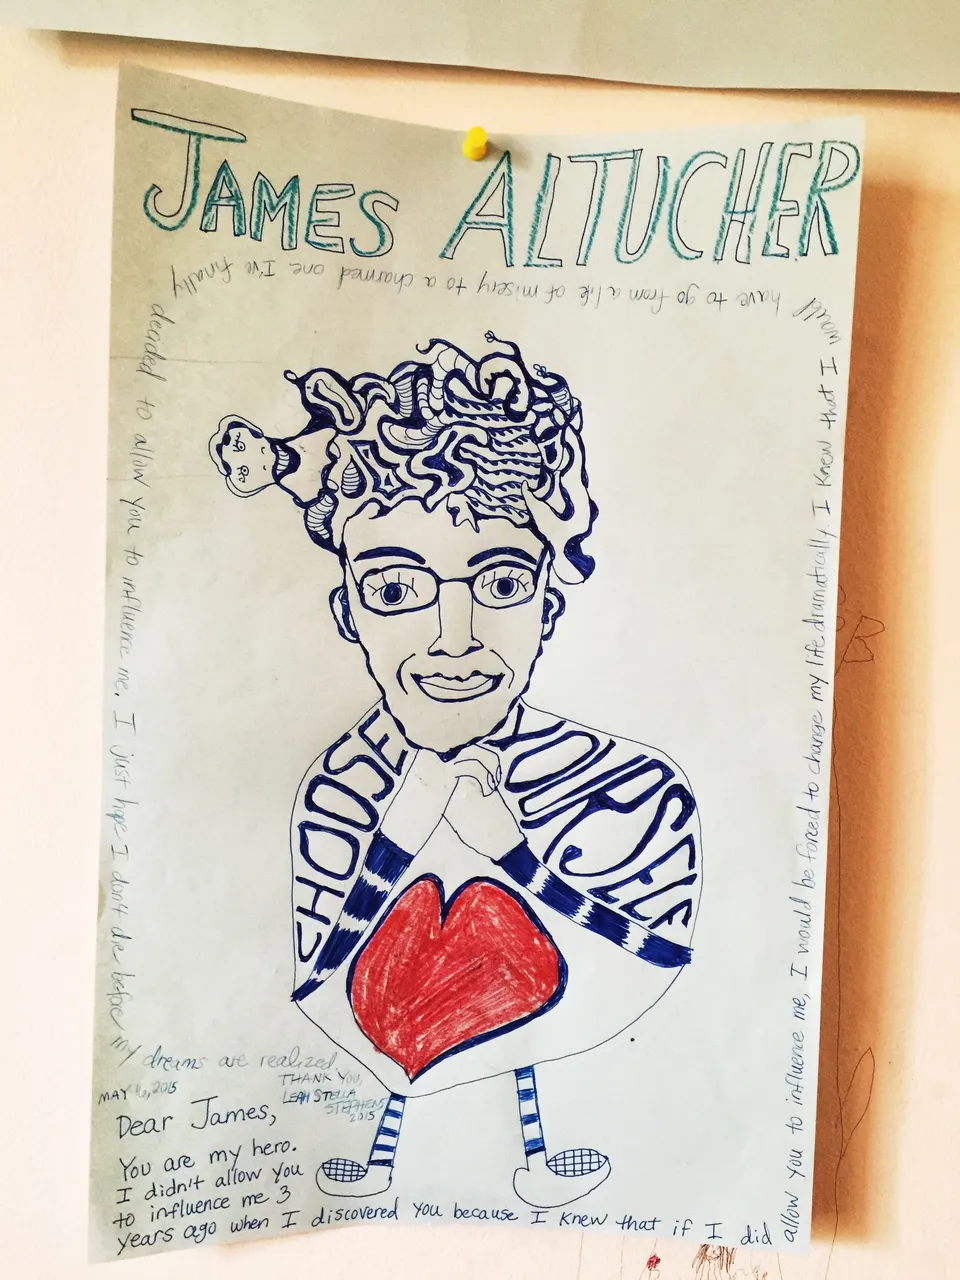 JAMES ALTUCHER
CHOOSE
YOURSELF
MAY 16, 2015
Dear James,
You are my hero.
I didn't allow you
to influence me 3
years ago when I discovered you because I knew that if I did
allow you to influence me, I would be forced to change my life dramatically. I knew that I
would
have to go from a life of misery to a charmed one. I've finally
decided to allow you to influence me. I just hope I don't die before
my dreams are realized.
THANK YOU,
LEAH STELLA
STEPHENS
2015